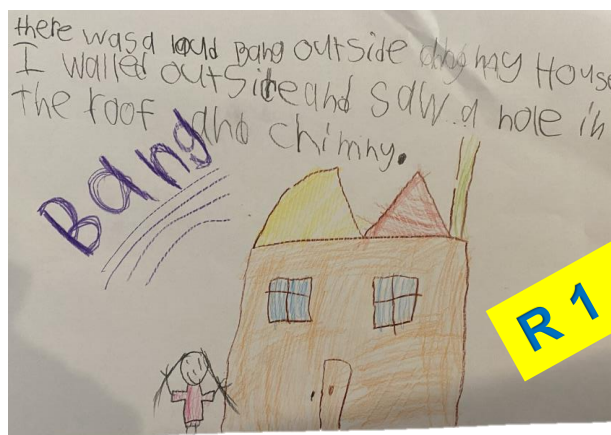 there was a loud Bang outside my House
I walled outside and saw a hole in
the roof and chimny.
Bang
R 1